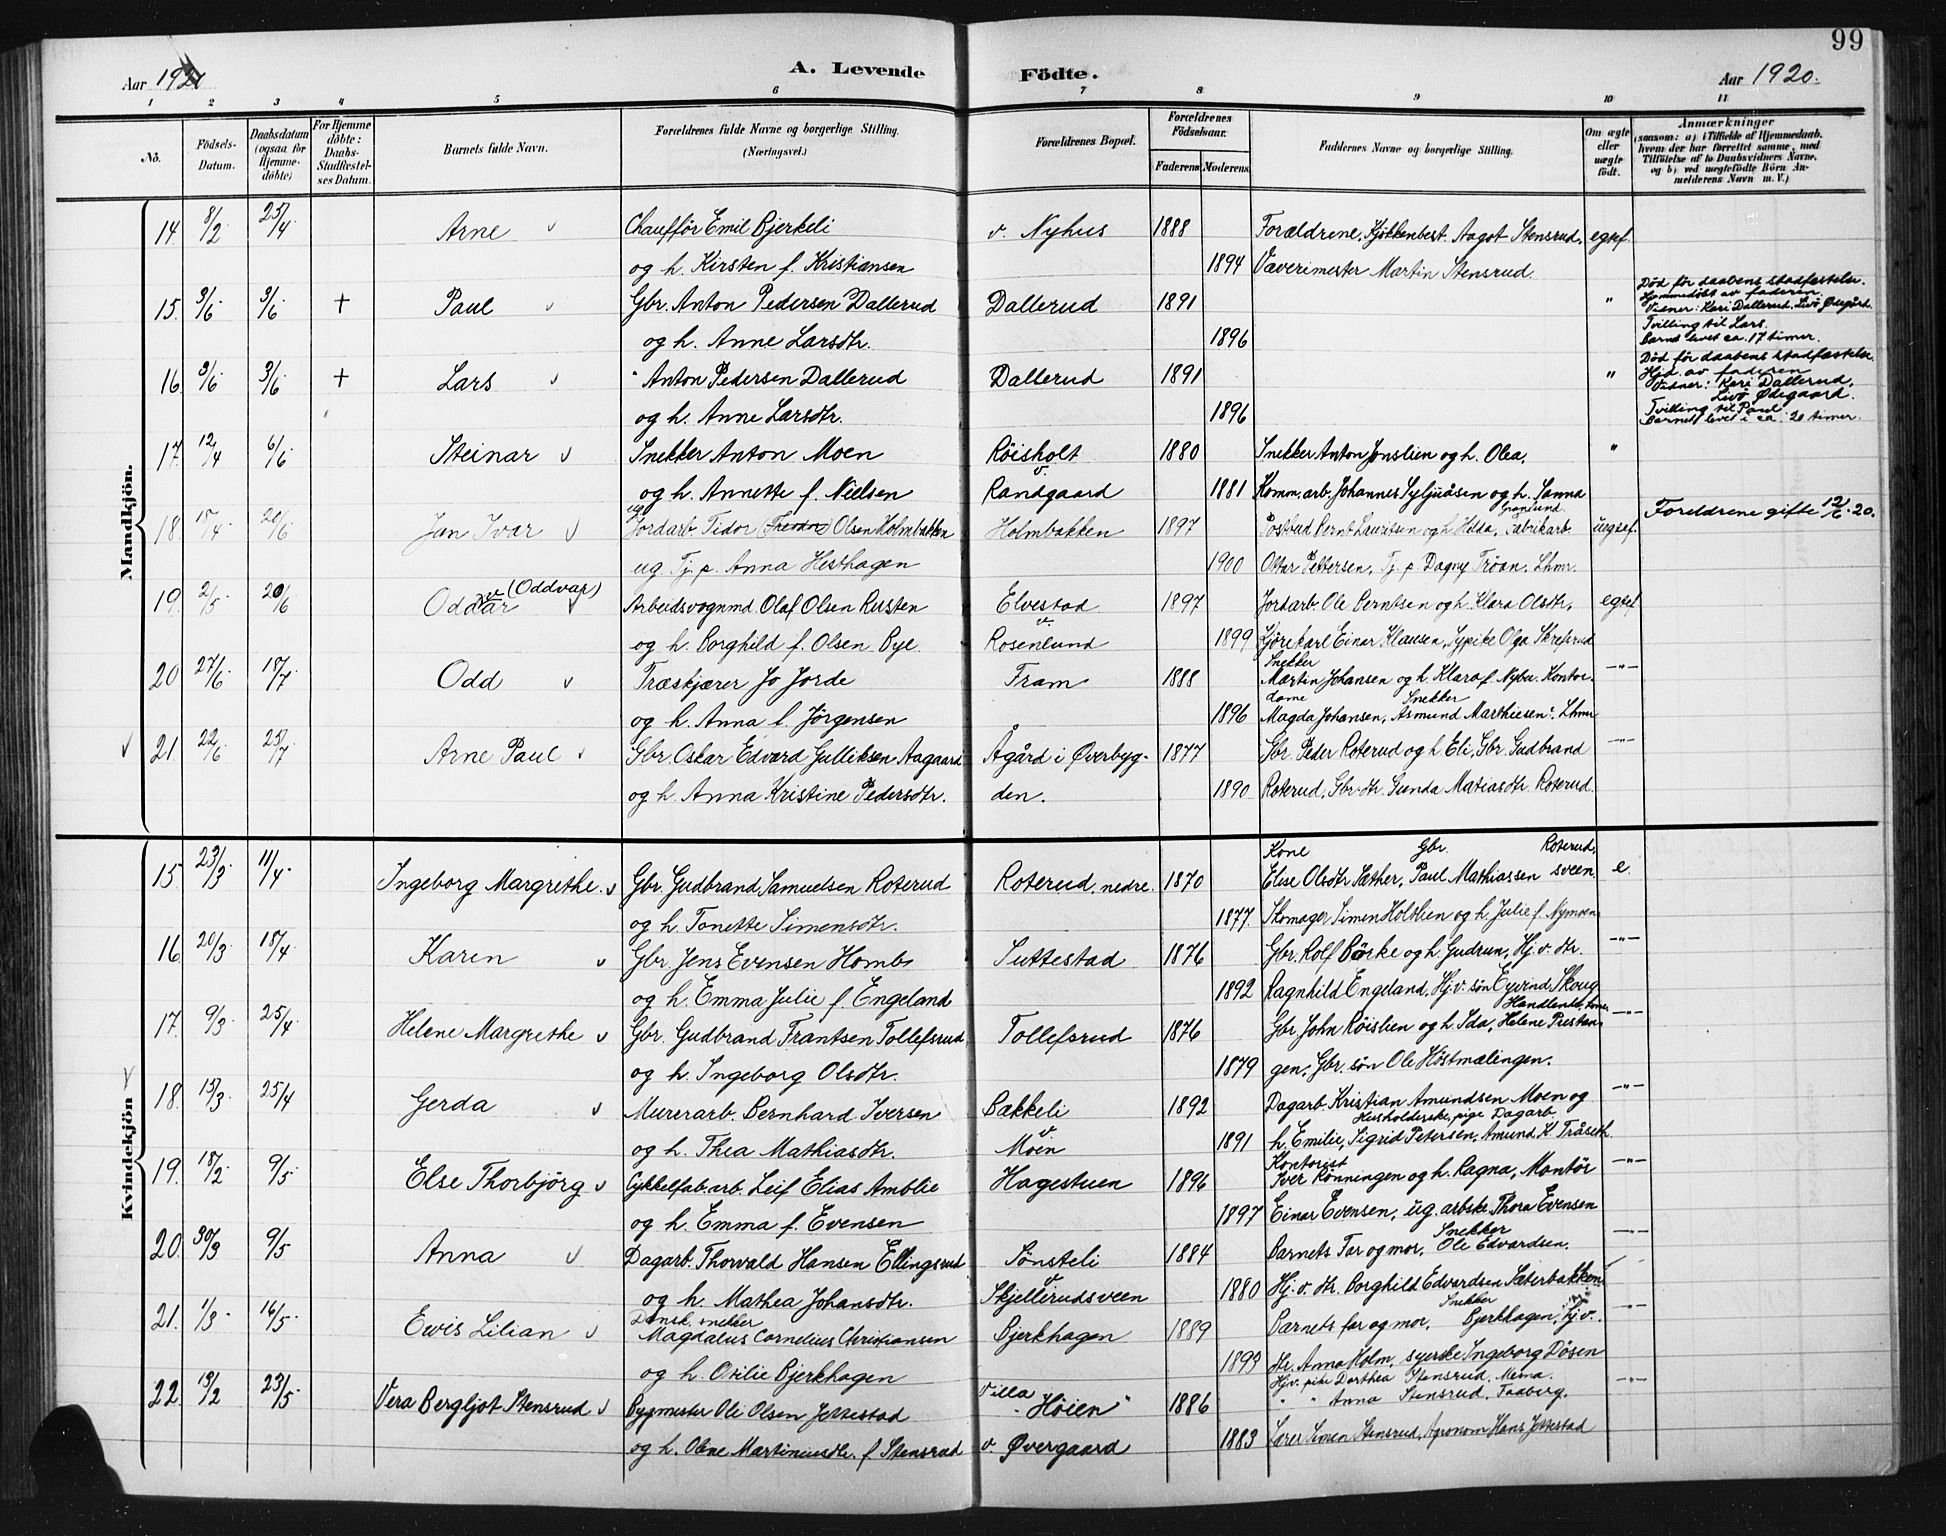 99
Aar 192
A. Levende Födte.
Aar 1920.
1 2 3 4 5 6 7 8 9 10 11
No.
Födsels-Datum.
Daabsdatum (ogsaa for Hjemme-döbte)
For Hjemme döbte: Daabs-Stadfæstel-ses Datum.
Barnets fulde Navn.
Forældrenes fulde Navne og borgerlige Stilling. (Næringsvei.)
Forældrenes Bopæl.
Forældrenes Födselsaar.
Faderens Moderens
Faddernes Navne og borgerlige Stilling.
Om ægte eller uægte födt.
Anmærkninger
(saasom: a) i Tilfælde af Hjemmedaab, hvem der har forrettet samme, med Tilföielse af to Daabsvidners Navne, og b) ved uægtefödte Börn Anmelderens Navn m. V.)
Mandkjön.
14. 8/2 25/4 Arne v Chaufför Emil Bjerkeli v. Nyhus 1888 Forældrene, Kjøkkenbest. Aagot Stensrud, egtef.
og h. Kirsten f. Kristiansen 1894 Væverimester Martin Stensrud.
15. 3/6 3/6 + Paul v Gbr. Anton Pedersen Dallerud Dallerud 1891 " Død för daabens stadfæstelse. Hjemmedöbt av faderen. Vidner: Kari Dallerud, Livö Øtegård.
og h. Anne Larsdtr. 1896 Tvilling til Lars. Barnet levet ca. 17 timer.
16 3/6 3/6 + Lars v " Anton Pedersen Dallerud Dallerud 1891 " Død för daabens stadfæstelse. Hjd. av faderen Vidner: Kari Dallerud, Livö Ødegaard.
og h. Anne Larsdtr. 1896 Tvilling til Paul Barnet levet i ca. 20 timer.
17. 12/4 6/6 Steinar v Snekker Anton Moen Röisholt 1880 Snekker Anton Jonslien og h. Olea, "
og h. Annette f. Nielsen v. Randgaard 1881 Komm. arb. Johannes Syljuåsen og h. Sanna
18. 15/4 20/6 Jan Ivar v ug Jordarb. Tidor (Freodor) Olsen Holmbakken Holmbakken 1897 Postbud Bernt Lauritsen og h. Hilda, Granlund Fabrikarb. uegtef. Foreldrene gifte 12/6-20.
ug. Tj. p. Anna Hesthagen 1900 Ottar Pettersen, Tj. p Dagny Tröan, Lhmr.
19. 2/5 20/6 Oddvar (Oddvar) v Arbeidsvognmd. Olaf Olsen Rusten Elvestad 1897 Jordarb. Ole Berntsen og h. Klara Olsdtr, egtef.
og h. Borghild f. Olsen Bye v. Rosenlund 1899 Kjörekarl Einar Klausen, Sypike Olga Skrefsrud
20 27/6 18/7 Odd v Træskjærer Jo Jorde Fram 1888 Snekker Martin Johansen og h. Klara f. Nybu. Kontor- -"-
og h. Anna f. Jørgensen 1896 dame Magda Johansen, Snekker Asmund Marthiesen. Lhmr
v 21 22/6 25/7 Arne Paul v Gbr. Oskar Edvard Gulliksen Aagaard Ågård i Øverbyg- 1877 Gbr. Peder Roterud og h Eli, Gbr Gudbrand -"-
og h. Anna Kristine Pedersdtr. den. 1890 Roterud, Gbr. dtr. Gunda Matiasdtr. Roterud.
Kvindekjön
15. 23/3 11/4 Ingeborg Margrethe v Gbr. Gudbrand Samuelsen Roterud Roterud, nedre. 1870 Kone Elise Olsdtr Sæther, Gbr. Paul Mathiassen Roterud, sveen e.
og h. Tonette Simensdtr. 1877. Skomager Simen Holslien og h. Julie f. Nymoen
16 20/3 18/4 Karen v Gbr. Jens Evensen Homb Suttestad 1876 Gbr. Rolf Börke og h. Gudrun, Hj. v. dtr. -"-
og h. Emma Julie f. Engeland 1892 Ragnhild Engeland, Hj. v. søn Eyvind Skoug
17. 9/3 25/4 Helene Margrethe v Gbr. Gudbrand Frantsen Tollefsrud Tollefsrud 1876 Gbr. John Röislien og h. Ida, Helene Prestan- -"-
og h. Ingeborg Olsdtr. 1879 gen, Gbr. søn Ole Höstmælingen.
18. 15/3 25/4 Gerda v Murerarb. Bernhard Iversen Bakkeli 1892 Dagarb. Kristian Amundsen Moen og -"-
og h. Thea Mathiasdtr. v Moen 1891 h. Emilie, Husholderske, pige Sigrid Petersen, Dagarb. Amund K. Tråseth
19. 18/2 9/5 Else Thorbjörg v Cykkelfab. arb. Leif Elias Amblie Hagestuen 1896 Kontorist Iver Rönningen og h. Ragna, Montör -"-
og h. Emma f. Evensen 1897 Einar Evensen, ug. arbske Thora Evensen
20. 30/3 9/5 Anna v Dagarb. Thorvald Hansen Ellingsrud Sönsteli 1884 Barnets Far og mor, Snekker Ole Edvardsen. -"-
og h. Mathea Johansdtr. v Skjellerudsveen 1880 Hj. v. dtr. Borghild Edvardsen Sæterbakken
21. 1/3 16/5 Ewis Lilian v Dansk snekker Magdalus Cornelius Christiansen Bjerkhagen 1889 Barnets far og mor, Snekker Bjerkhagen, Hj. v. -"-
og h. Otilie Bjerkhagen 1893 dtr. Anna Holm, syerske Ingeborg Dösen
22. 13/2 23/5 Vera Bergljot Stensrud v Bygmester Ole Olsen Jevestad Villa "Höien" 1886 Hjv. pike Dorthea Stensrud, Mema. " " Anna Stensrud, Faaberg. -"-
og h. Oline Martiniusdtr. f. Stensrud v. Øvergaard 1883 Lærer Simen Stensrud, Agronom Hans Jevestad